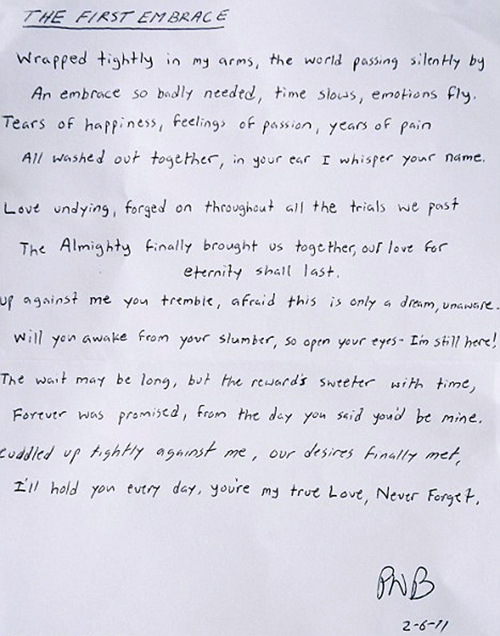 THE FIRST EMBRACE
Wrapped tightly in my arms, the world passing silently by
An embrace so badly needed, time slows, emotions fly.
Tears of happiness, feelings of passion, years of pain
All washed out together, in your ear I whisper your name.
Love undying, forged on throughout all the trials we past
The Almighty finally brought us together, our love for
eternity shall last.
up against me you tremble, afraid this is only a dream, unaware.
Will you awake from your slumber, so open your eyes- I'm still here!
The wait may be long, but the reward's sweeter with time,
Forever was promised, from the day you said you'd be mine.
cuddled up tightly against me, our desires finally met,
I'll hold you every day, you're my true Love, Never Forget.
PWB
2-6-11